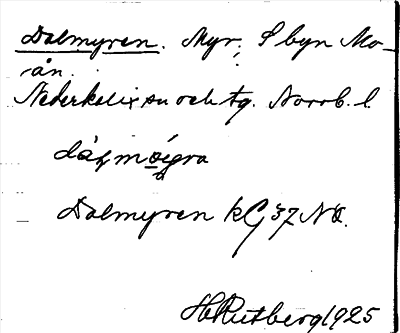 Dalmyren. Myr. S byn Mo-
ån.
Nederkalix sn och tg. Norrb. l.
Dalmyren kG 37 NO.
H Rutberg 1925